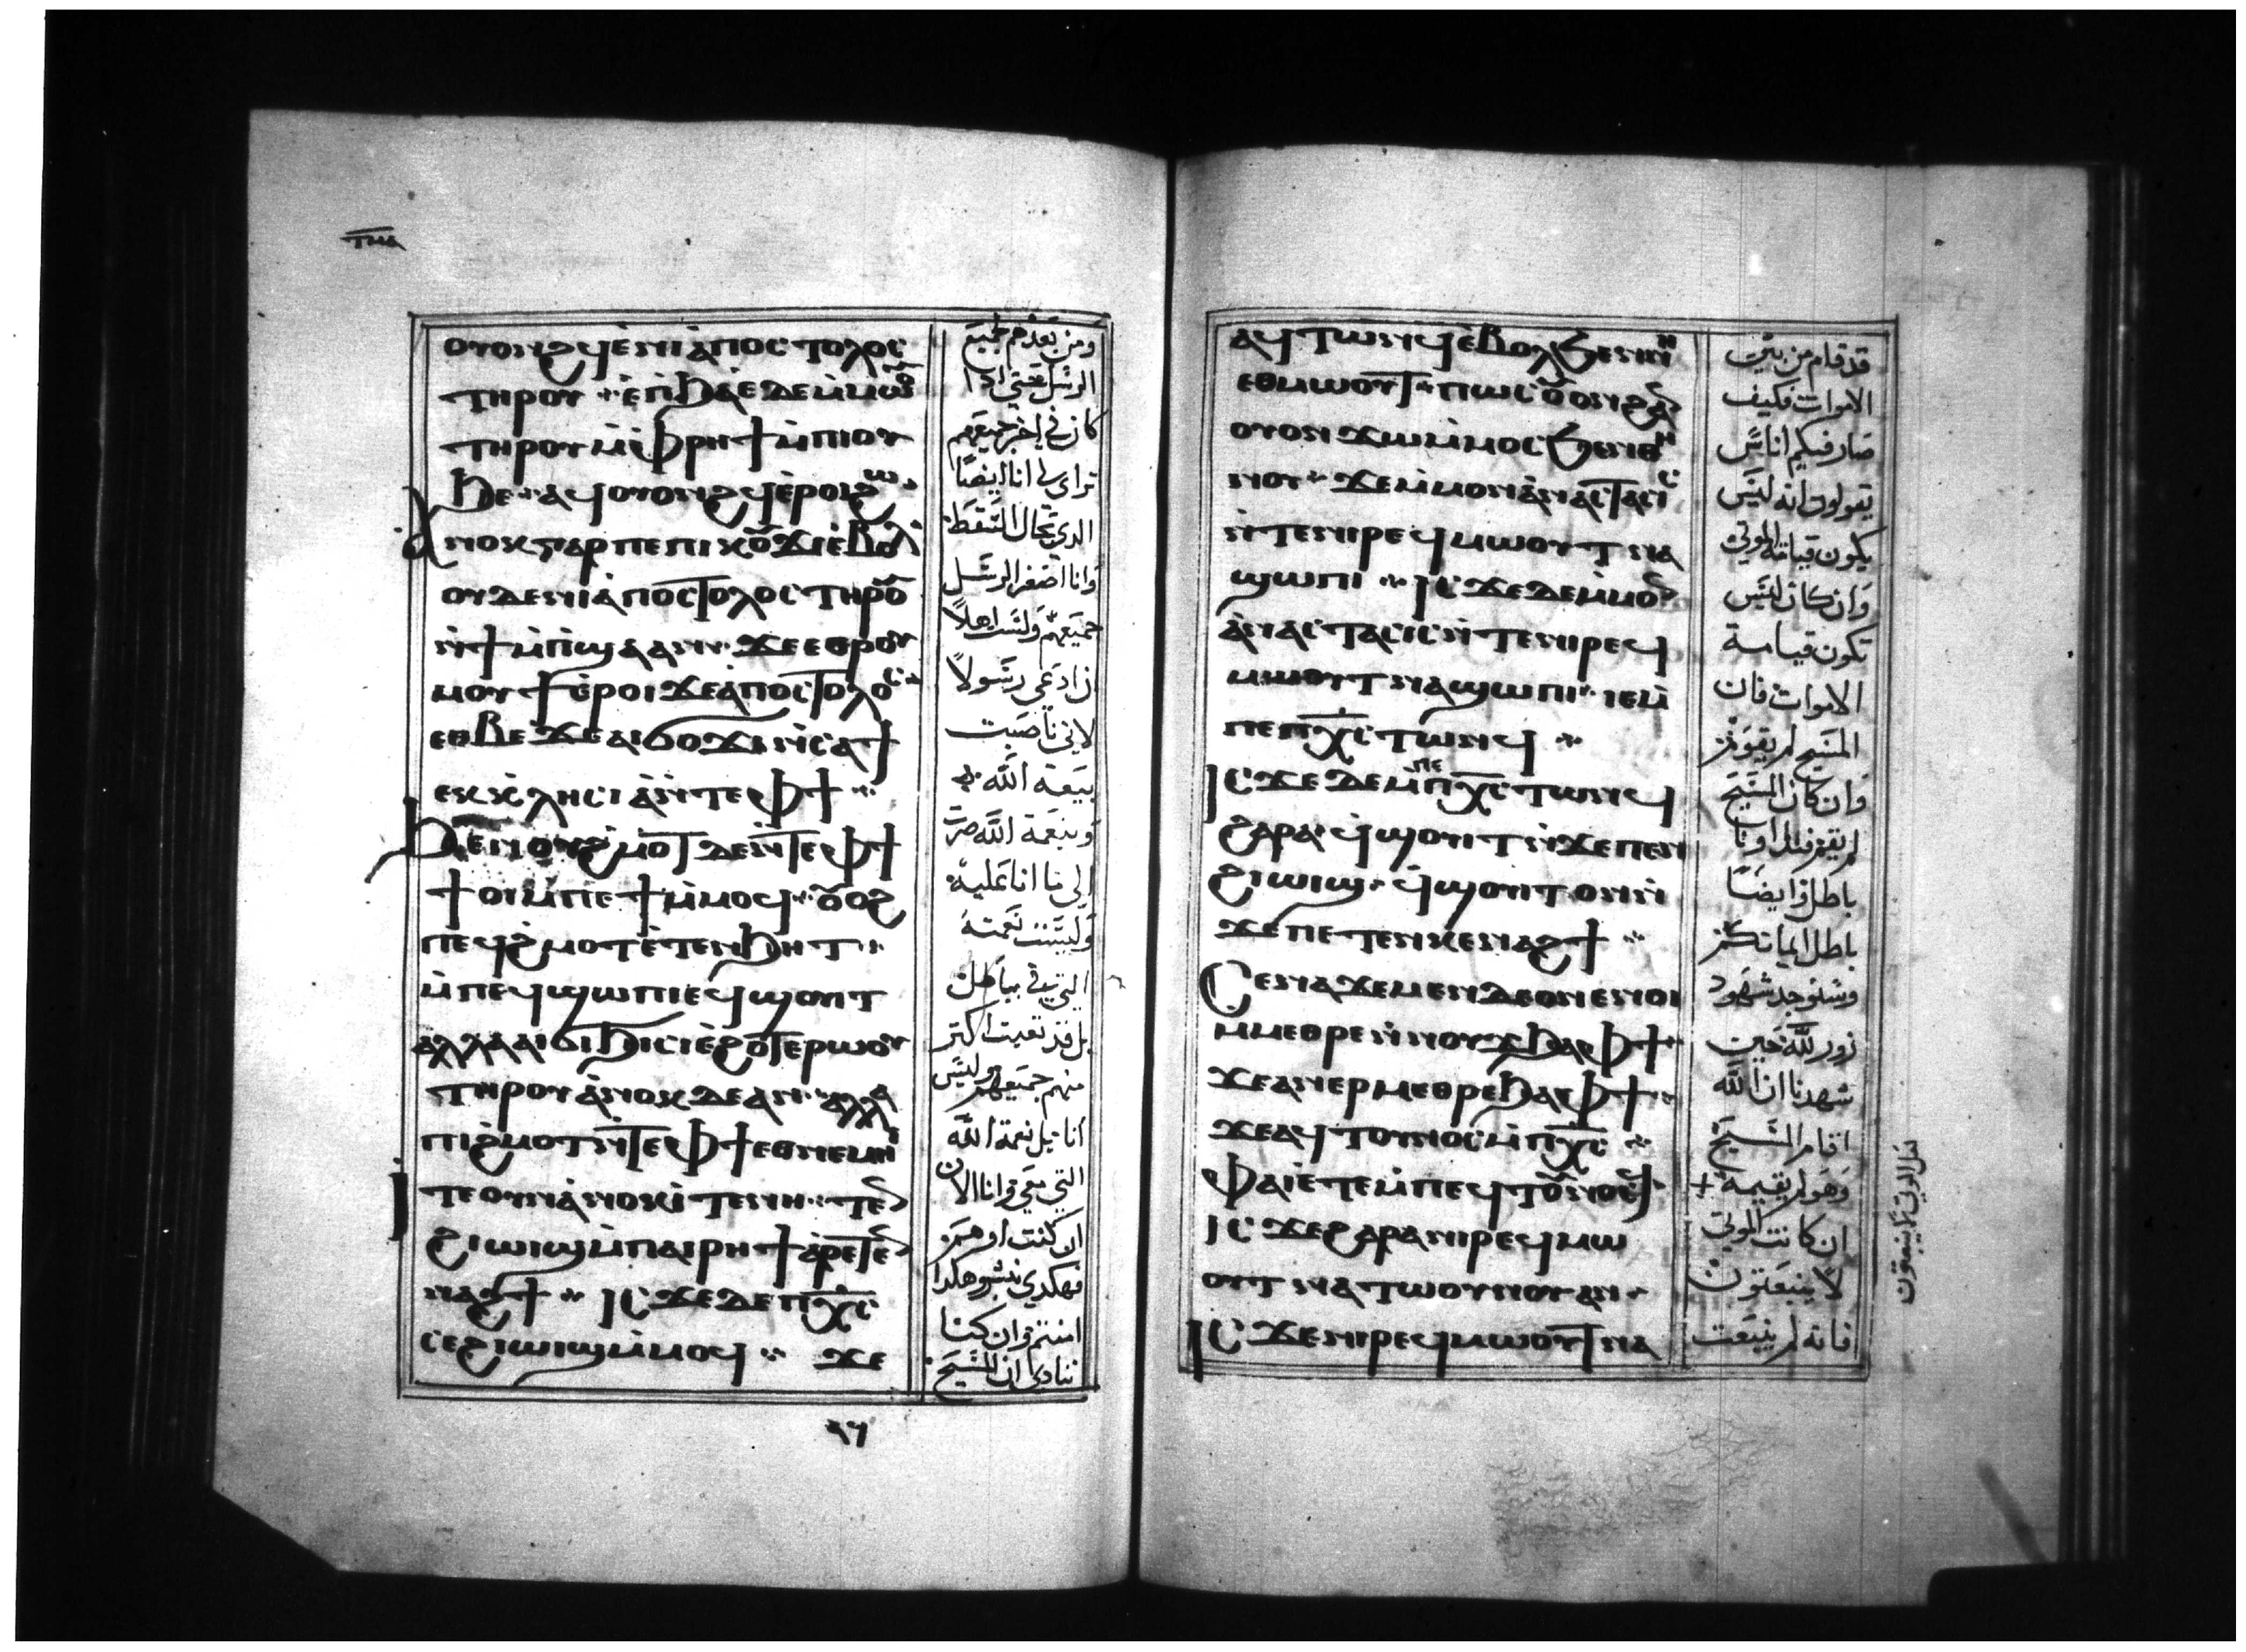 ⲧⲙⲁ
ⲟⲩⲟⲛϩϥ ⲉⲛⲓⲁⲡⲟⲥⲧⲟⲗⲟⲥ
ⲧⲏⲣⲟⲩ ⲉⲡϧⲁⲉ ⲇⲉ ⲙⲙⲱⲟⲩ
ⲧⲏⲣⲟⲩ ⲙⲫⲣⲏϯ ⲙⲡⲓⲟⲩ
ϧⲉ ⲁϥⲟⲩⲟⲛϩϥ ⲉⲣⲟⲓ ϩⲱ
ⲁⲛⲟⲕ ⲅⲁⲣ ⲡⲉ ⲡⲓⲕⲟⲩϫⲓ ⲉⲃⲟⲗ
ⲟⲩⲇⲉ ⲛⲓⲁⲡⲟⲥⲧⲟⲗⲟⲥ ⲧⲏⲣⲟⲩ
ⲛϯⲙⲡϣⲁ ⲁⲛ ϫⲉ ⲉⲑⲣⲟⲩ
ⲙⲟⲩϯ ⲉⲣⲟⲓ ϫⲉ ⲁⲡⲟⲥⲧⲟⲗⲟⲥ
ⲉⲑⲃⲉ ϫⲉ ⲁⲓϭⲟϫⲓ ⲛⲥⲁ ϯ
ⲉⲕⲕⲗⲏⲥⲓⲁ ⲛⲧⲉ ⲫϯ
ϧⲉⲛ ⲟⲩϩⲙⲟⲧ ⲇⲉ ⲛⲧⲉ ⲫϯ
ϯⲟⲓ ⲙⲡⲉϯⲙⲙⲟϥ ⲟⲩⲟϩ
ⲡⲉϥϩⲙⲟⲧ ⲉⲧⲉⲛϧⲏⲧ
ⲙⲡⲉϥϣⲱⲡⲓ ⲉϥϣⲟⲩⲓⲧ
ⲁⲗⲗⲁ ⲁⲓϭⲓϧⲓⲥⲓ ⲉϩⲟⲧⲉⲣⲱⲟⲩ
ⲧⲏⲣⲟⲩ ⲁⲛⲟⲕ ⲇⲉ ⲁⲛ ⲁⲗⲗⲁ
ⲡⲓϩⲙⲟⲧ ⲛⲧⲉ ⲫϯ ⲉⲑⲛⲉⲙⲏⲓ
ⲓⲧⲉ ⲟⲩⲛ ⲁⲛⲟⲕ ⲓⲧⲉ ⲛⲏ ⲧⲉⲛ
ϩⲓⲱⲓϣ ⲙⲡⲁⲓⲣⲏϯ ⲁⲣⲉⲧⲉⲛ
ⲛⲁϩϯ ⲓⲥϫⲉ ⲇⲉ ⲡⲭⲥ
ⲥⲉϩⲓⲱⲓϣ ⲙⲙⲟϥ ϫⲉ
ومن بعدهم جميع
الرسل حتى اذا
كان في اخر جميعهم
تراى لى انا ايضًا
الذي بحال السقط
وانا اصغر الرسل
جميعهم ولست اهلاً
ان ادعى رسولاً
لانى ناصبت
بيعة الله
وبنعمة الله صرت
الى ما انا عليه
وليست نعمته
التي في بباطل
بل قد تعبت اكتر
منهم جميعهم وليس
انا بل نعمة الله
التي معي وانا الان
ان كنت او هم
فهكدي نبشر وهكدا
امنتم وان كنا
ننادى ان المسيح
ⲁϥⲧⲱⲛϥ ⲉⲃⲟⲗϧⲉⲛ ⲛⲏ
ⲉⲑⲙⲱⲟⲩⲧ ⲡⲱⲥ ⲟⲩⲟⲛ ϩⲁⲛ
ⲟⲩⲟⲛ ϫⲱ ⲙⲙⲟⲥ ϧⲉⲛ ⲑⲏ
ⲛⲟⲩ ϫⲉ ⲙⲙⲟⲛ ⲁⲛⲁⲥⲧⲁⲥⲓⲥ
ⲛⲧⲉ ⲛⲓⲣⲉϥⲙⲱⲟⲩⲧ ⲛⲁ
ϣⲱⲡⲓ ⲓⲥϫⲉ ⲇⲉ ⲙⲙⲟⲛ
ⲁⲛⲁⲥⲧⲁⲥⲓⲥ ⲛⲧⲉ ⲛⲓⲣⲉϥ
ⲙⲱⲟⲩⲧ ⲛⲁϣⲱⲡⲓ ⲓⲉ ⲙ
ⲡⲉ ⲡⲭⲥ ⲧⲱⲛϥ
ⲓⲥϫⲉ ⲇⲉ ⲙⲡⲉ ⲡⲭⲥ ⲧⲱⲛϥ
ϩⲁⲣⲁ ϥϣⲟⲩⲓⲧ ⲛϫⲉ ⲡⲉⲛ
ϩⲓⲱⲓϣ ϥϣⲟⲩⲓⲧ ⲟⲛ ⲛ
ϫⲉ ⲡⲉⲧⲉⲛⲕⲉⲛⲁϩϯ
ⲥⲉⲛⲁϫⲉⲙⲉⲛ ⲇⲉ ⲟⲛ ⲉⲛⲟⲓ
ⲙⲙⲉⲑⲣⲉ ⲛⲛⲟⲩϫ ϧⲁ ⲫϯ
ϫⲉ ⲁⲛⲉⲣⲙⲉⲑⲣⲉ ϧⲁ ⲫϯ
ϫⲉ ⲁϥⲧⲟⲩⲛⲟⲥ ⲙⲡⲭⲥ
ⲫⲁⲓ ⲉⲧⲉ ⲙⲡⲉϥⲧⲟⲩⲛⲟⲥϥ
ⲓⲥϫⲉ ϩⲁⲣⲁ ⲛⲓⲣⲉϥⲙⲱ
ⲟⲩⲧ ⲛⲁⲧⲱⲟⲩⲛⲟⲩ ⲁⲛ
ⲓⲥϫⲉ ⲛⲓⲣⲉϥⲙⲱⲟⲩⲧ ⲛⲁ
قد قام من بين
الاموات فكيف
صار فيكم اناس
يقولون انه ليس
يكون قيامة الموتى
وان كان ليس
تكون قيامة
الاموات فان
المسيح لم يقوم
وان كان المسيح
لم يقم فندا اونا
باطل وايضًا
باطل ايمانكم
وسنوجد شهود
زور لله حيت
شهدنا ان الله
اقام المسيح
وهو لم يقيمه +
ان كانت الموتى
لا ينبعتون
فانه لم ينبعت